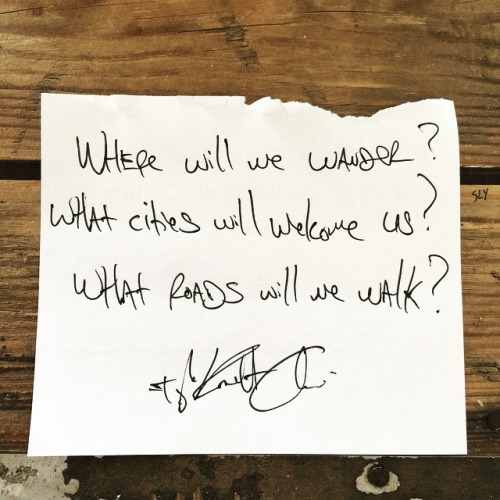 WHERE will we WANDER?
WHAt cities will welcome us?
SLY
WHAt ROADS will we WAlk?